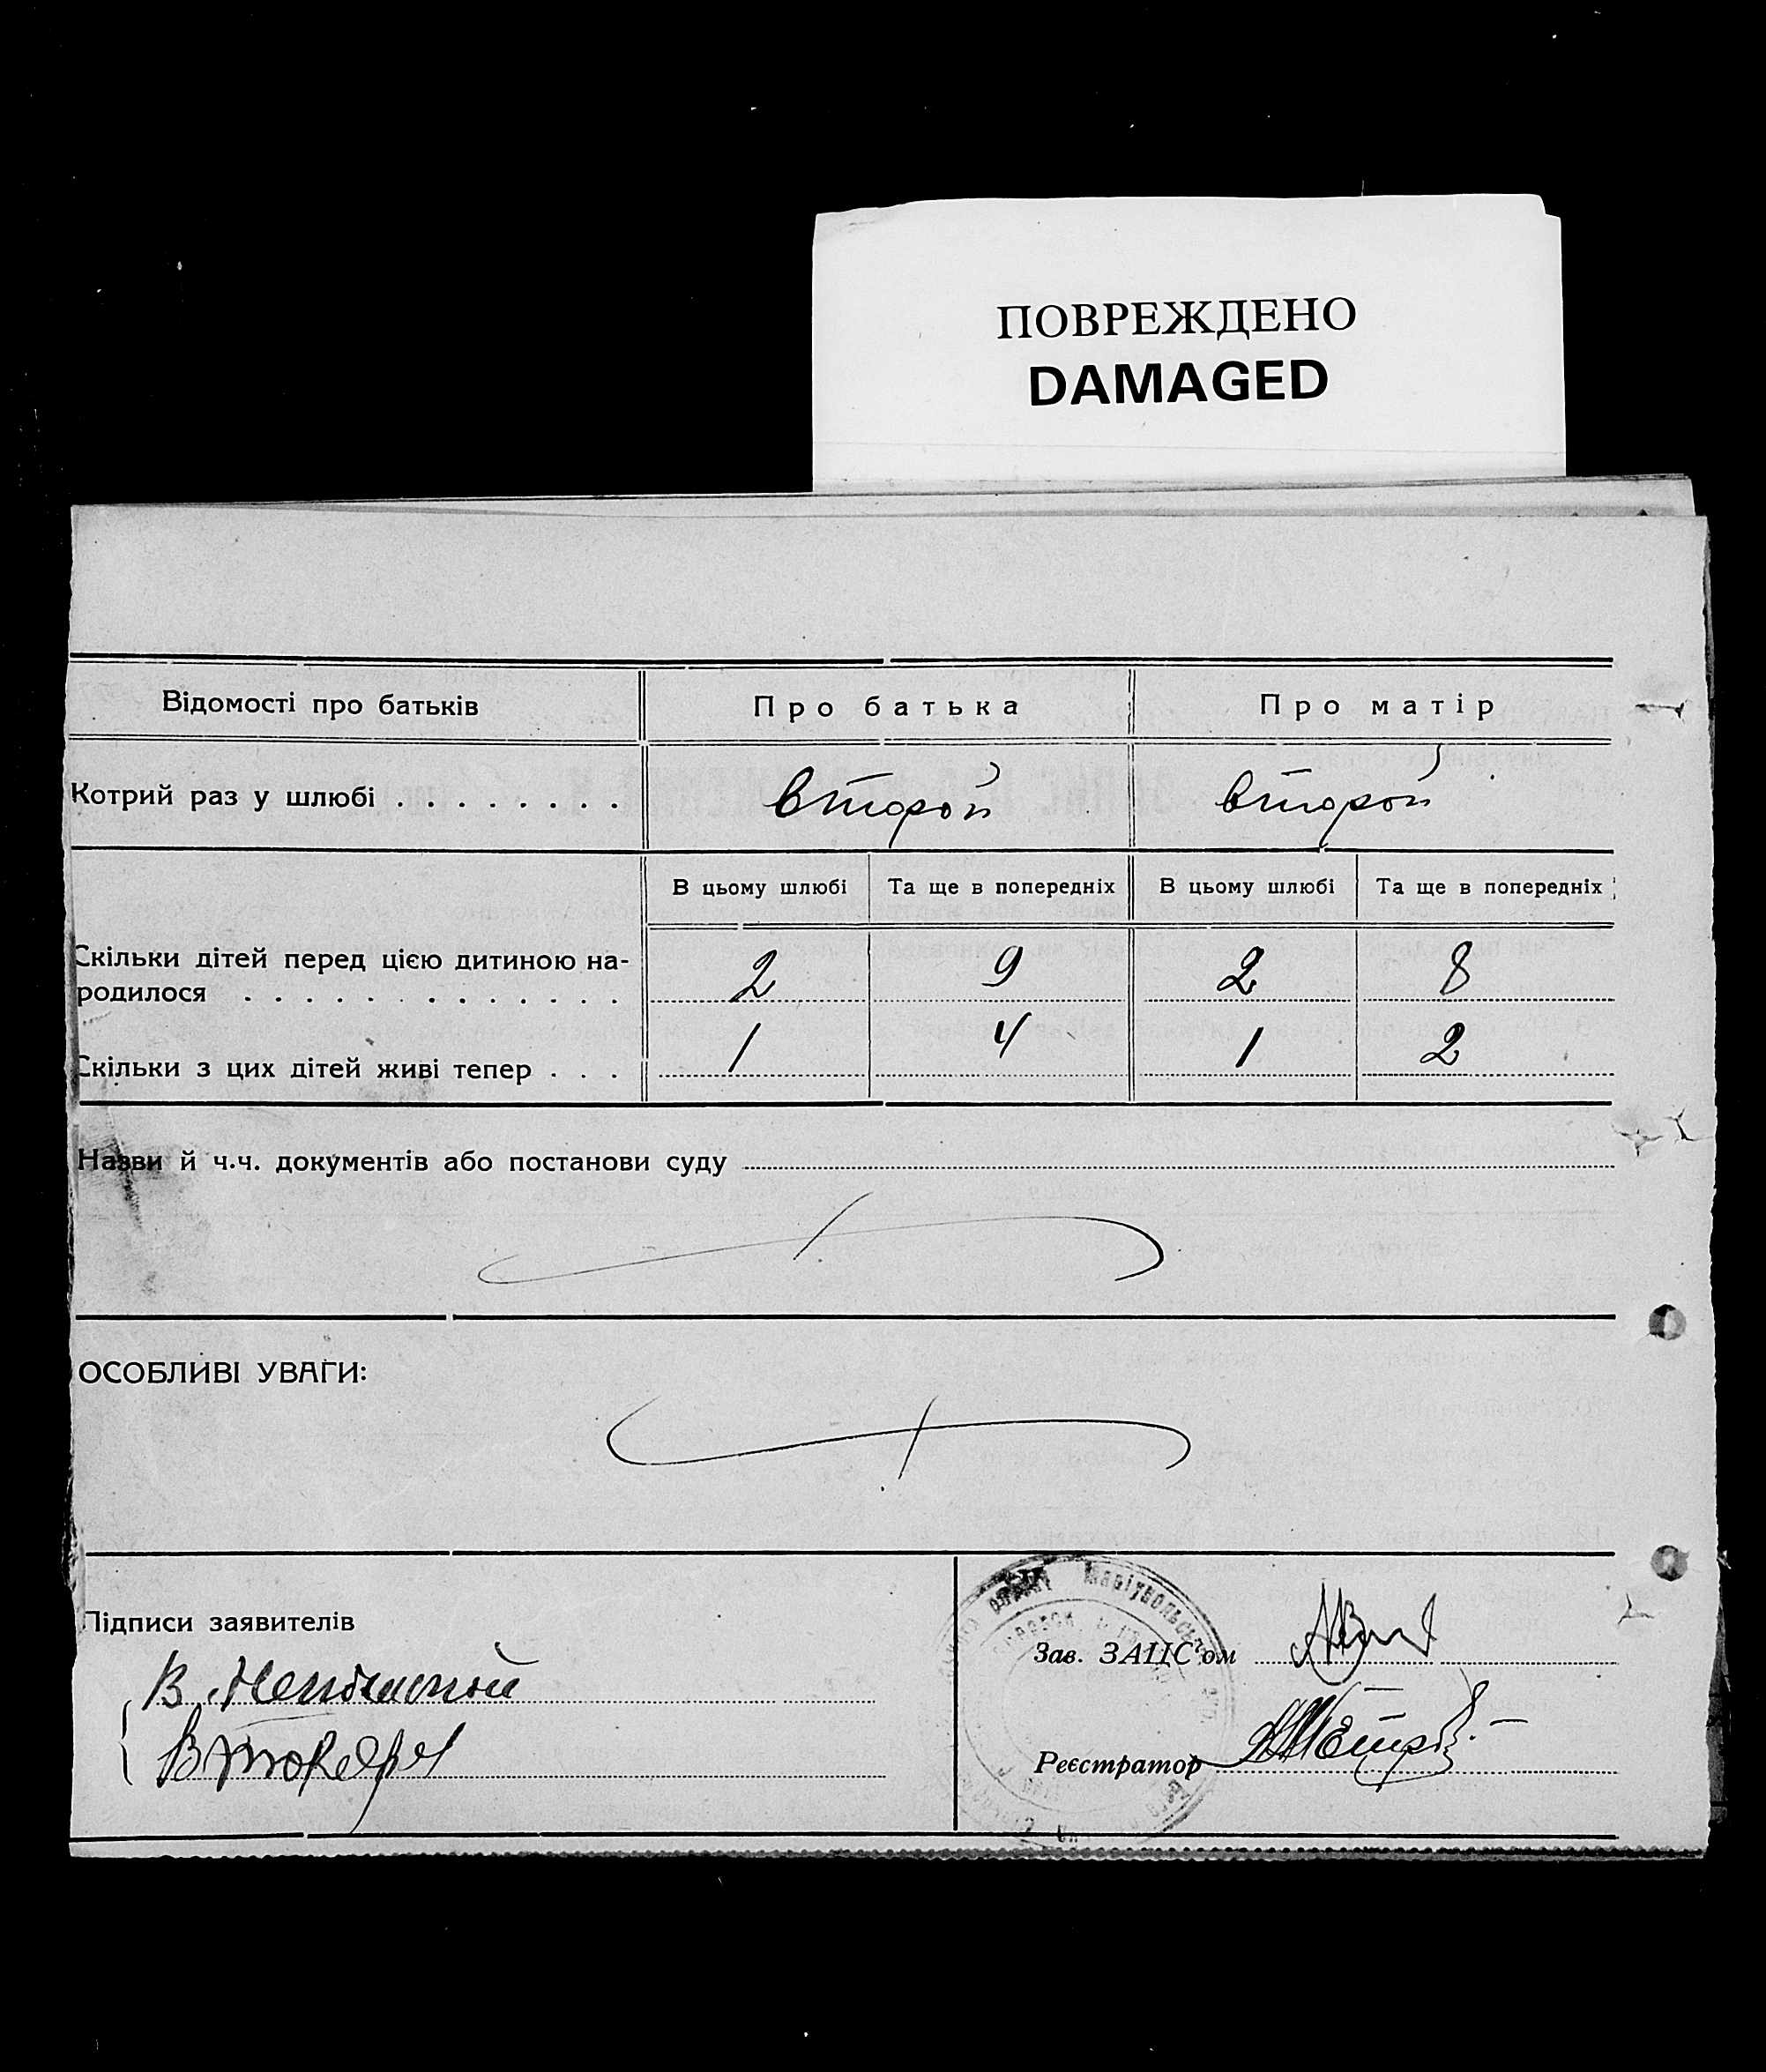 ПОВРЕЖДЕНО
DAMAGED
Відомості про батьків Про батька Про матір
Котрий раз у шлюбі . . . . . . . . второй второй
В цьому шлюбі Та ще в попередніх В цьому шлюбі Та ще в попередніх
Скільки дітей перед цією дитиною на-
родилося . . . . . . . . . . . . . 2 9 2 8
Скільки з цих дітей живі тепер . . . 1 4 1 2
Назви й ч.ч. документів або постанови суду
ОСОБЛИВІ УВАГИ:
Підписи заявителів
Зав. ЗАЦС'ом
В.
Реєстратор